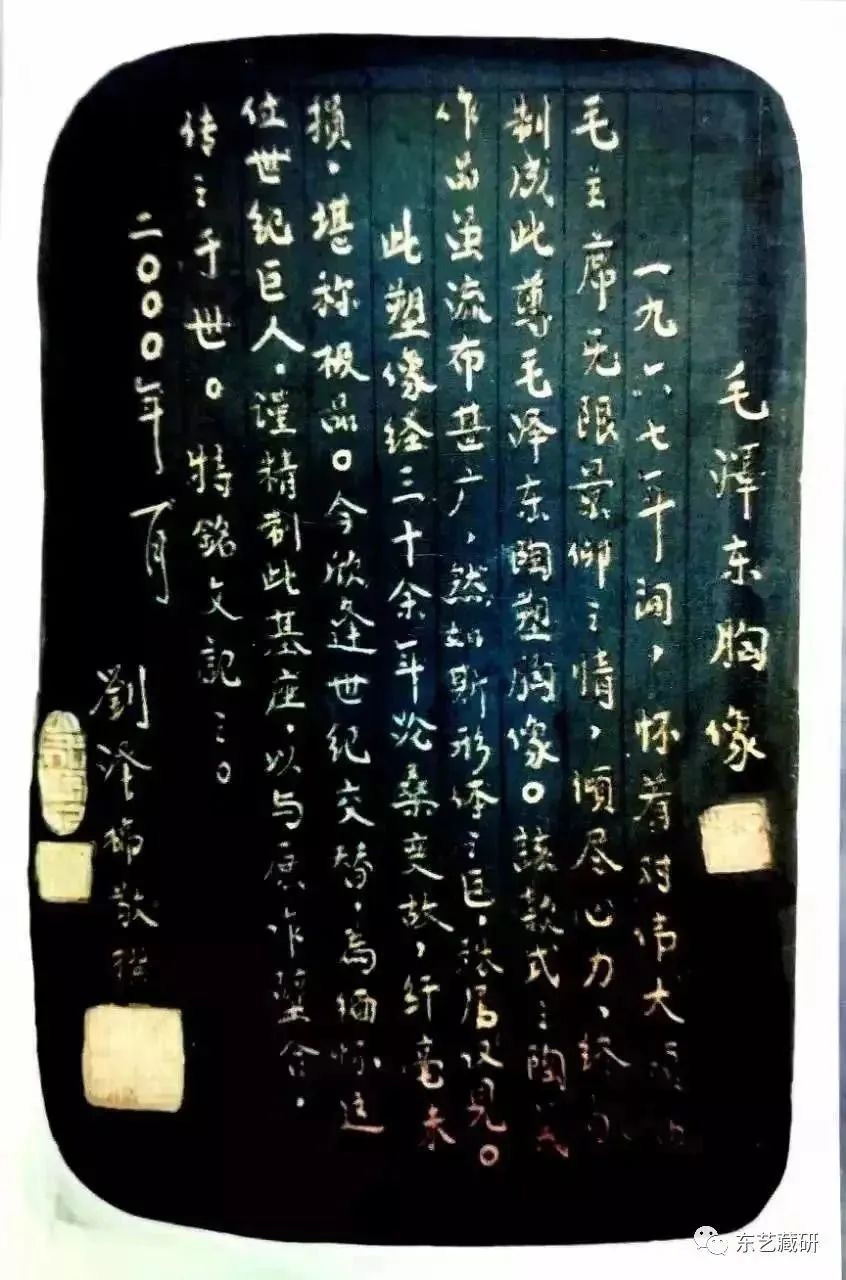 毛泽东胸像
一九六七年间，怀着对伟大领袖
毛主席无限景仰之情，倾尽心力，终于
制成此尊毛泽东陶塑胸像。該款式之陶瓷
作品虽流布甚广，然如斯形体之巨，殊属仅见。
此塑像经三十余年沧桑变故，纤毫未
损，堪称极品。今欣逢世纪交替，为缅怀这
位世纪巨人，谨精制此基座，以与原作璧合，
传之于世。特銘文記之。
二〇〇〇年一月
劉泽棉敬撰
东艺藏研